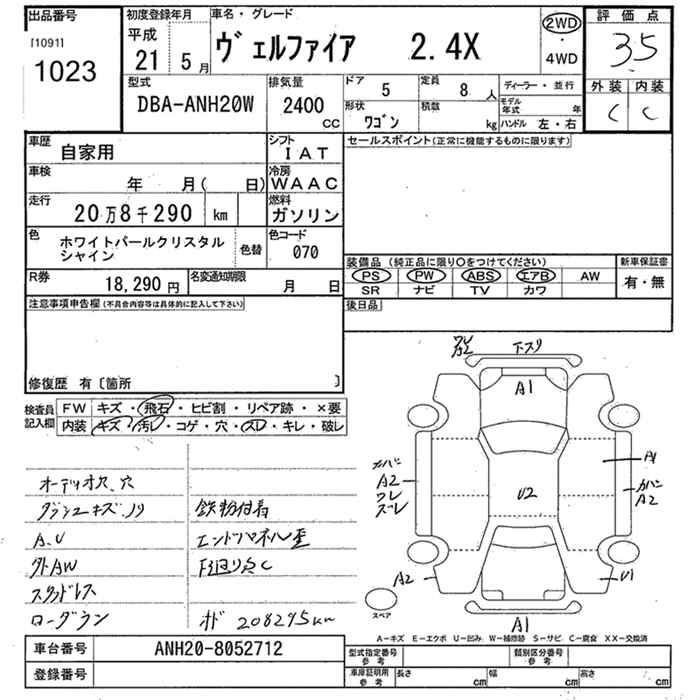 出品番号
[1091]
1023
初度登録年月
平成
21年 5月
車名・グレード
ヴェルファイア 2.4X
2WD
・
4WD
評価点
3.5
外装 内装
C C
型式
DBA-ANH20W
排気量
2400
cc
ドア
5
定員
8 人
形状
ワゴン
積載
kg
ディーラー・並行
モデル年式 年
ハンドル 左・右
車歴
自家用
シフト
IAT
車検
年 月( 日)
冷房
WAAC
走行
20万8千290 km
燃料
ガソリン
色
ホワイトパールクリスタル
シャイン
色替
色コード
070
R券
18,290円
名変通知期限
月 日
セールスポイント(正常に機能するものに限ります)
装備品(純正品に限り○をつけてください)
PS PW ABS エアB AW
SR ナビ TV カワ
新車保証書
有・無
後日品
注意事項申告欄(不具合内容等は具体的に記入して下さい)
修復歴 有〔箇所 〕
検査員
記入欄
FW キズ・飛石・ヒビ割・リペア跡・×要
内装 キズ・汚レ・コゲ・穴・スレ・キレ・破レ
オーディオス、穴
ダッシュキズ、ノリ
A.U
外AW
スタッドレス
ローダウン
鉄粉付着
エンドパネル歪
下廻りサC
ホド 208295km
ワレ
A2
下スリ
A1
カバー
A2
ワレ
ズレ
U2
A1
カバー
A2
A2
U1
A1
スペア
A-キズ E-エクボ U-凹み W-補修跡 S-サビ C-腐食 XX-交換済
車台番号
ANH20-8052712
登録番号
型式指定番号
参考
類別区分番号
参考
車庫証明用
参考
長さ cm
幅 cm
高さ cm